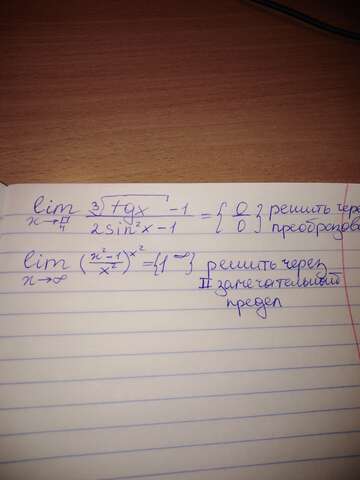 lim x→π/4 (∛tgx - 1)/(2sin²x - 1) = {0/0} решить
lim x→∞ ((x²-1)/x²)^x² = {1^∞} решить через
II замечательный
предел